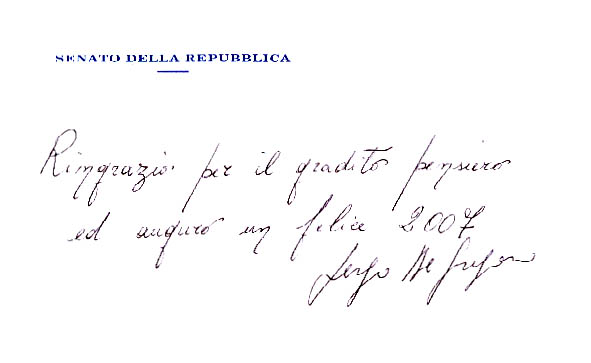 SENATO DELLA REPUBBLICA
Ringrazio per il gradito pensiero
ed auguro un felice 2007
Sergio De Gregorio